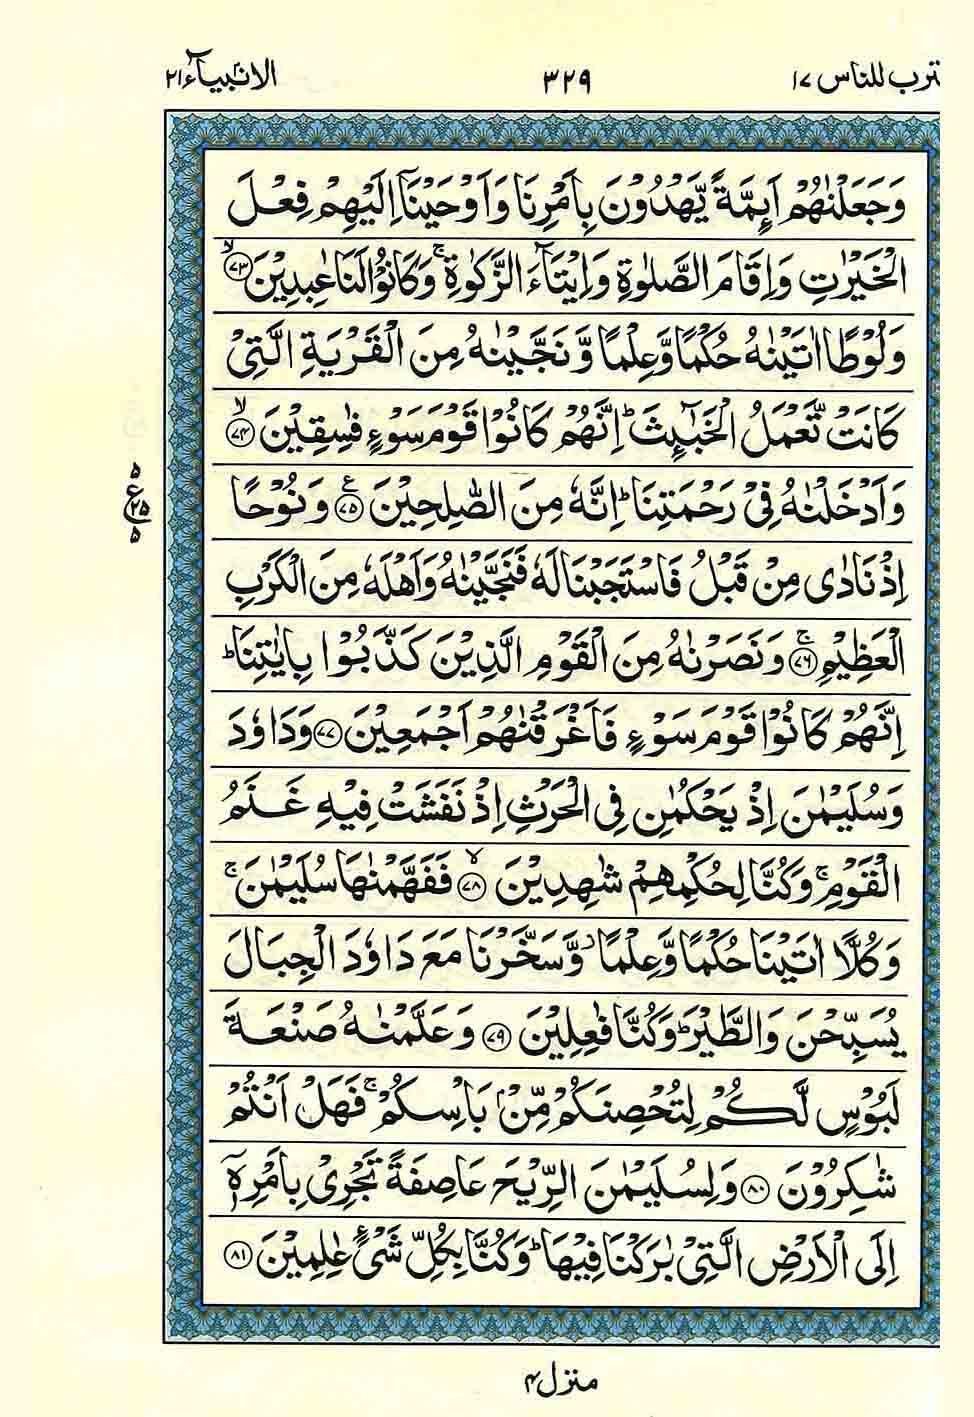 ترب للناس ١٧
٣٢٩
الانبيآء ٢١
وَجَعَلْنٰهُمْ اَئِمَّةً يَّهْدُوْنَ بِاَمْرِنَا وَاَوْحَيْنَاۤ اِلَيْهِمْ فِعْلَ
الْخَيْرٰتِ وَاِقَامَ الصَّلٰوةِ وَاِيْتَآءَ الزَّكٰوةِ ۚ وَكَانُوْا لَنَا عٰبِدِيْنَ ۙ‏﴿٧٣﴾
وَلُوْطًا اٰتَيْنٰهُ حُكْمًا وَّعِلْمًا وَّنَجَّيْنٰهُ مِنَ الْقَرْيَةِ الَّتِيْ
كَانَتْ تَّعْمَلُ الْخَبٰٓئِثَ ؕ اِنَّهُمْ كَانُوْا قَوْمَ سَوْءٍ فٰسِقِيْنَ ۙ‏﴿٧٤﴾
وَاَدْخَلْنٰهُ فِيْ رَحْمَتِنَا ؕ اِنَّهٗ مِنَ الصّٰلِحِيْنَ ﴿٧٥﴾ ع وَنُوْحًا
اِذْ نَادٰى مِنْ قَبْلُ فَاسْتَجَبْنَا لَهٗ فَنَجَّيْنٰهُ وَاَهْلَهٗ مِنَ الْكَرْبِ
الْعَظِيْمِ ۚ‏﴿٧٦﴾ وَنَصَرْنٰهُ مِنَ الْقَوْمِ الَّذِيْنَ كَذَّبُوْا بِاٰيٰتِنَا ؕ
اِنَّهُمْ كَانُوْا قَوْمَ سَوْءٍ فَاَغْرَقْنٰهُمْ اَجْمَعِيْنَ ﴿٧٧﴾ وَدَاوٗدَ
وَسُلَيْمٰنَ اِذْ يَحْكُمٰنِ فِي الْحَرْثِ اِذْ نَفَشَتْ فِيْهِ غَنَمُ
الْقَوْمِ ۚ وَكُنَّا لِحُكْمِهِمْ شٰهِدِيْنَ ۙ‏﴿٧٨﴾ فَفَهَّمْنٰهَا سُلَيْمٰنَ ۚ
وَكُلًّا اٰتَيْنَا حُكْمًا وَّعِلْمًا ز وَّسَخَّرْنَا مَعَ دَاوٗدَ الْجِبَالَ
يُسَبِّحْنَ وَالطَّيْرَ ؕ وَكُنَّا فٰعِلِيْنَ ﴿٧٩﴾ وَعَلَّمْنٰهُ صَنْعَةَ
لَبُوْسٍ لَّكُمْ لِتُحْصِنَكُمْ مِّنْۢ بَاْسِكُمْ ۚ فَهَلْ اَنْتُمْ
شٰكِرُوْنَ ﴿٨٠﴾ وَلِسُلَيْمٰنَ الرِّيْحَ عَاصِفَةً تَجْرِيْ بِاَمْرِهٖۤ
اِلَى الْاَرْضِ الَّتِيْ بٰرَكْنَا فِيْهَا ؕ وَكُنَّا بِكُلِّ شَيْءٍ عٰلِمِيْنَ ﴿٨١﴾
٥
ع ٢٥
٥
منزل ٤